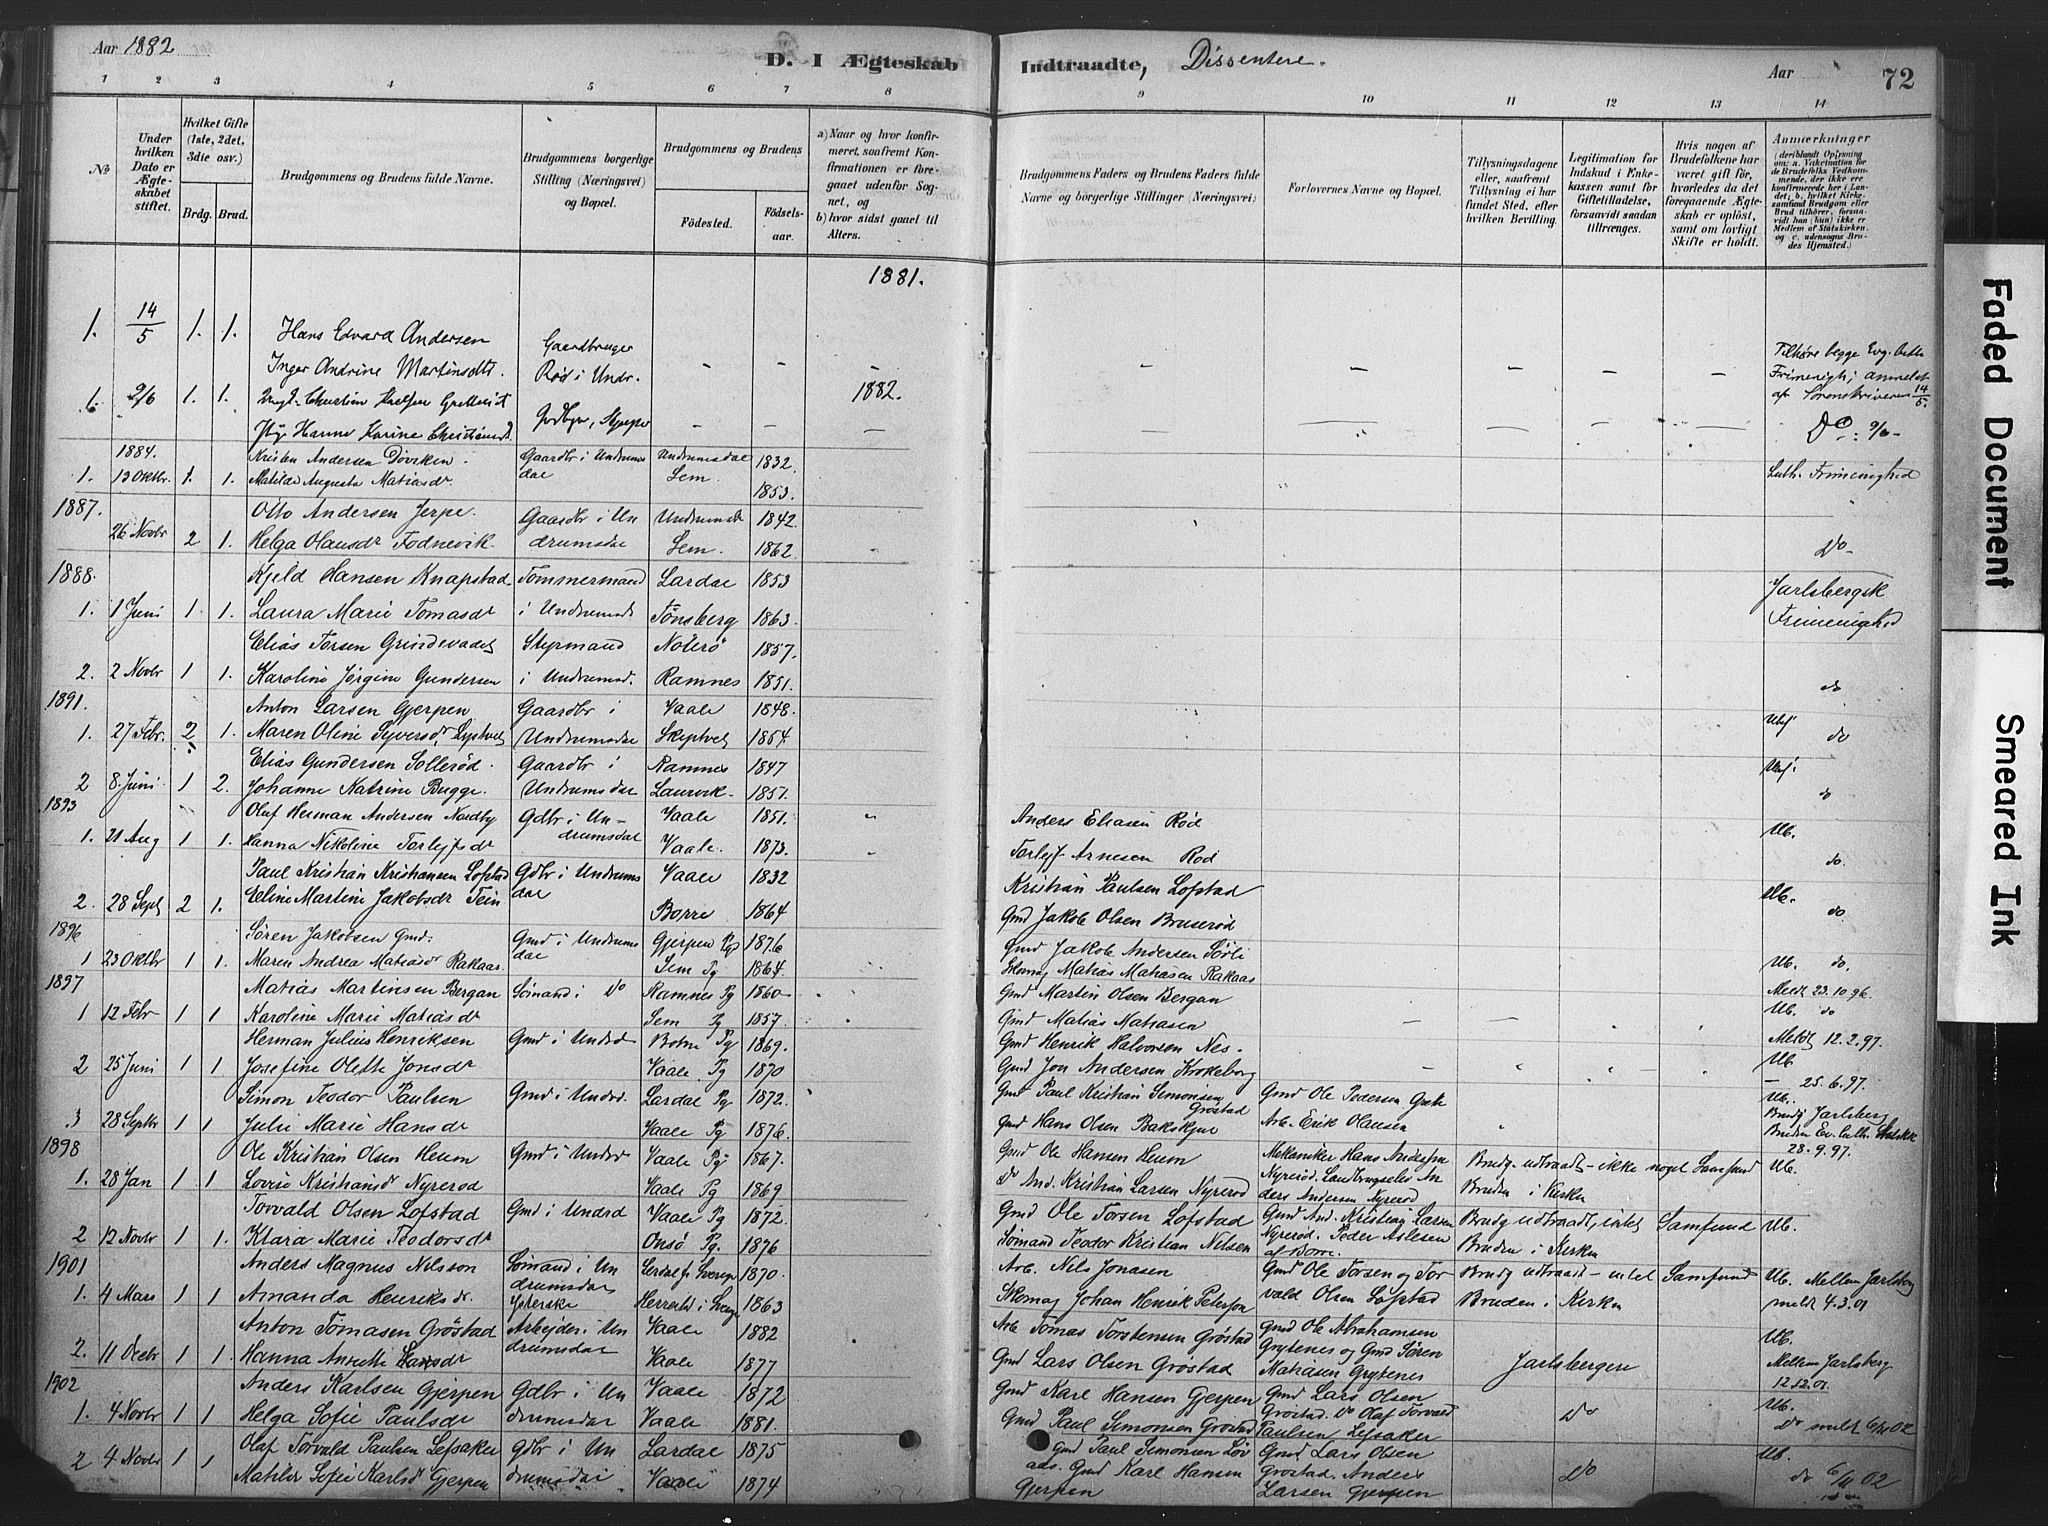 Aar 1882
D. I Ægteskab Indtraadte, Dissentere.
Aar
72
1 2 3 4 5 6 7 8 9 10 11 12 13 14
№
Under hvilken Dato er Ægteskabet stiftet.
Hvilket Gifte (1ste, 2det, 3die osv.)
Brdg. Brud.
Brudgommens og Brudens fulde Navne.
Brudgommens borgerlige Stilling (Næringsvei) og Bopæl.
Brudgommens og Brudens
Fødested.
Fødselsaar.
a) Naar og hvor konfirmeret, saafremt Konfirmationen er foregaaet udenfor Sognet, og
b) hvor sidst gaaet til Alters.
Brudgommens Faders og Brudens Faders fulde Navne og borgerlige Stillinger (Næringsvei)
Forlovernes Navne og Bopæl.
Tillysningsdagene eller, saafremt Tillysning ei har fundet Sted, efter hvilken Bevilling.
Legitimation for Indskud i Enkekassen samt for Giftetilladelse, forsaavidt saadan tiltrænges.
Hvis nogen af Brudefolkene har været gift før, hvorledes da det foregaaende Ægteskab er opløst, samt om lovligt Skifte er holdt.
Anmærkninger
(deriblandt Oplysning om: a. Vakcination for de Brudefolks Vedkommende, der ikke ere konfirmerede her i Landet; b. hvilket Kirkesamfund Brudgom eller Brud tilhører, forsaavidt han (hun) ikke er Medlem af Statskirken, og c. udensogns Brudes Hjemsted.)
1881.
1. 14/5 1. 1. Hans Edvard Andersen Gaardbruger
Inger Andrine Martinsdtt. Rød i Undr. Tilhøre begge Evg. luth.
Frimenigh; anmeldt
af Sorenskriveren 14/5.
1882.
1. 2/6 1. 1.
Hanne Karine Do: 9/6
1884. Kristen Andersen Døvrken Gaardbr i Undrums Undrumsdal 1832.
1. 13 Oktbr. 1. 1. Matilde Augusta Matiasdr. dal Sem. 1853. Luth. Frimenighed
1887. Otto Andersen Jerpe. Gaardbr i Un Undrumsdl 1842.
26 Novbr 2 1. Helga Olausdr Fodnevik. drumsdal Sem. 1862. Do
1888. Kjeld Hansen Knapstad Tømmermand Lardal 1853 Jarlsbergsk
1. 1 Juni 1 1. Laura Marie Tomasdr i Undrumsdl Tønsberg 1863. Frimenighed
Elias Torsen Grindevadet Styrmand Nøterø 1857.
2. 2 Novbr 1 1. Karoline Jørgine Gundersen i Undrumsd. Ramnes 1851. do
1891. Anton Larsen Gjerpen Gaardbr i Vaale 1848.
1. 27 Febr. 2 1. Maren Oline Syversdr Undrumsdal Skiptvet 1854. do
Elias Gundersen Sollerød. Gaardbr i Ramnes 1847
2 8. Juni 1 2. Johanne Katrine Bugge. Undrumsdal Laurvik 1851. do
1893 Oluf Herman Andersen Nordby Gdbr i Un- Vaale 1851. Anders Eliasen Rød Ub.
1. 21 Aug 1 1. Hanna Nikoline Torlejfsdr drumsdal Vaale. 1873. Torlejf Arnesen Rød do.
Paul Kristian Kristiansen Lofstad Gdbr i Undrums Vaale 1832 Kristian Paulsen Lofstad Ub.
2. 28 Sept 2 1. Eline Martine Jakobsdr Tein dal Borre 1864 Gmd Jakob Olsen Bruserød do
1896 Søren Jakobsen Gmd: Gmd i Undrums Gjerpen Pg 1876 Gmd Jakob Andersen Sørli
1 23 Oktbr 1 1. Maren Andrea Matiasdr Rakaas. dal Sem Pg 1864. Skomag Matias Matiasen Rakaas Ub. do.
1897 Matias Martinsen Bergan Sømand i Do Ramnes Pg 1860 Gmd Martin Olsen Bergan Meldt 23.10.96.
1 12 Febr 1 1 Karoline Marie Matiasdr Sem Pg 1857. Gmd Matias Matiasen Ub. do
Herman Julius Henriksen Gmd i Undrd Botne Pg 1869. Gmd Henrik Halvorsen Nes. Meldt 12.2.97.
2 25 Juni 1 1 Josefine Olette Jonsdr Vaale Pg 1870 Gmd Jon Andersen Krokeborg Ub
25.6.97.
Simon Teodor Paulsen Gmd i Undrd. Lardal Pg 1872. Gmd Paul Kristian Simonsen Grøstad Gmd Ole Pedersen Ub.
3 28 Septbr 1 1 Julie Marie Hansdr Vaale Pg 1876. Gmd Hans Olsen Bakskjær Arb. Erik Olausen Brudg Jarlsberg
Bruden Ev. luth. Statskk
28.9.97.
1898 Ole Kristian Olsen Heum Gmd i Undrd Vaale Pg 1867. Gmd Ole Hansen Heum Mekaniker Hans Andersen Brudg. udtraadt - ikke noget Samfund Ub.
1. 28 Jan 1 1 Lovise Kristiansdr Nyrerød Vaale Pg 1869 Do And. Kristian Larsen Nyrerød Nyrerød. Landbrugselev Anders Andersen Nyrerød Bruden i Kirken
Torvald Olsen Lofstad Gmd i Undrd Vaale Pg 1872. Gmd Ole Torsen Lofstad Gmd And. Kristian Larsen Brudg udtraadt, intet Samfund Ub.
2 12 Novbr 1 1. Klara Marie Teodorsdr Onsø Pg. 1876 Sømand Teodor Kristian Nilsen Nyrerød. Peder Aslesen af Borre. Bruden i Kirken
1901 Anders Magnus Nilsson Sømand i Un Serdal fr Sverige 1870. Arb. Nils Jonasen Gmd Ole Torsen og Tor Brudg udtraadt - intet Samfund Ub. Mellem Jarlsberg
1. 4 Mars 1 1 Amanda Henriksdr. drumsdal Herrestad i Sverige 1863 Skomag Johan Henrik Peterson vald Olsen Lofstad Bruden i Kirken meldt 4.3.01
Anton Tomasen Grøstad Arbejder i Un Vaale 1882 Arb Tomas Torstensen Grøstad Gmd Ole Abrahamsen Ub.
2. 11 Decbr 1 1 Hanna Anette Larsdr drumsdal Vaale 1877 Gmd Lars Olsen Grøstad Grytenes og Gmd Søren Matiasen Grytenes Jarlsbergere Mellem Jarlsberg
12.12.01.
1902 Anders Karlsen Gjerpen Gdbr i Un Vaale 1872 Gmd Karl Hansen Gjerpen Gmd Lars Olsen Ub.
1. 4 Novbr 1 1 Helga Sofie Paulsdr drumsdal Vaale 1881. Gmd Paul Simonsen Grøstad Grøstad. Do Olaf Torvald Paulsen Lefsaker Do Do meldt 6/11 02
Olaf Torvald Paulsen Lefsaker Gdbr i Un Lardal 1875 Gmd Paul Simonsen Løv Gmd Lars Olsen Ub.
2 4 Novbr 1 1 Matilde Sofie Karlsdr Gjerpen drumsdal Vaale 1874 aas. Gmd Karl Hansen Gjerpen Grøstad. Anders Larsen Gjerpen Do do 6/11 02
Faded Document
Smeared Ink